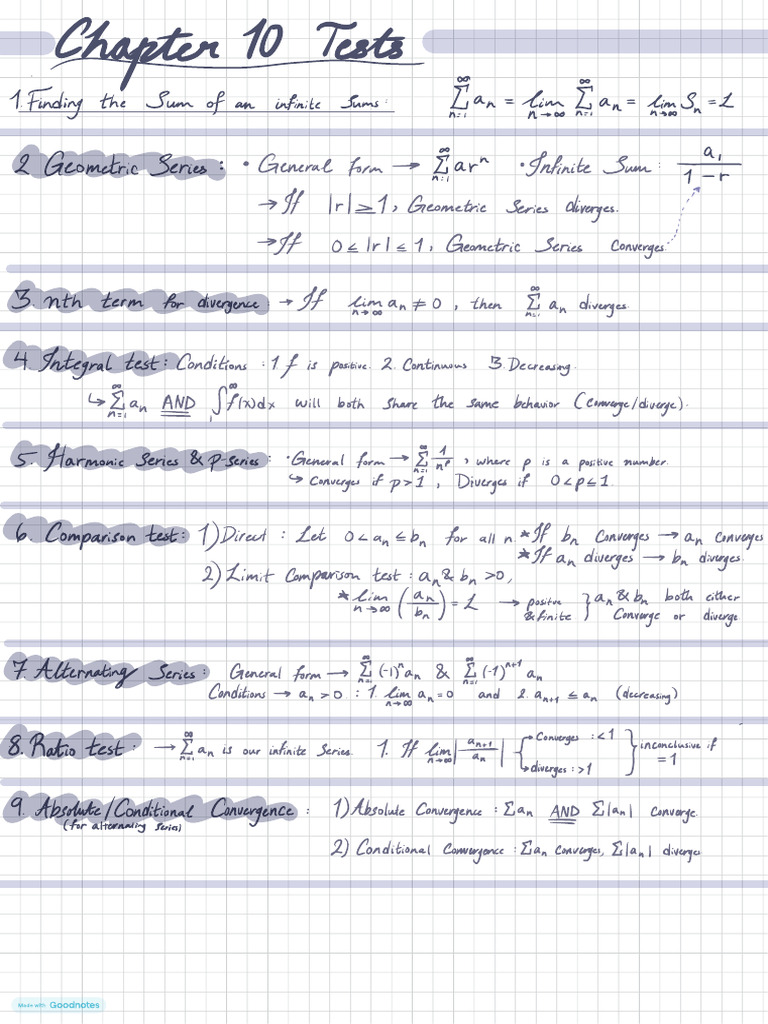 Chapter 10 Tests
1. Finding the Sum of an infinite Sums: ∞Σn=1 aₙ = lim n→∞ ∞Σn=1 aₙ = lim n→∞ Sₙ = L
2 Geometric Series: • General form → ∞Σn=1 arⁿ • Infinite Sum: a₁/(1-r)
→ If |r| ≥ 1, Geometric Series diverges.
→ If 0 ≤ |r| ≤ 1, Geometric Series Converges
3. nth term for divergence: → If lim n→∞ aₙ ≠ 0, then ∞Σn=1 aₙ diverges
4. Integral test: Conditions: 1. f is positive. 2. Continuous 3. Decreasing.
↳ ∞Σn=1 aₙ AND ∫₁^∞ f(x)dx will both share the same behavior (Converge/diverge).
5. Harmonic Series & p-series: • General form → ∞Σn=1 1/nᵖ, where p is a positive number.
↳ Converges if p>1, Diverges if 0<p≤1
6. Comparison test: 1) Direct: Let 0<aₙ≤bₙ for all n. * If bₙ Converges → aₙ converges
* If aₙ diverges → bₙ diverges.
2) Limit Comparison test: aₙ & bₙ >0,
* lim n→∞ (aₙ/bₙ) = L → positive & finite } aₙ & bₙ both either Converge or diverge
7. Alternating Series: General form → ∞Σn=1 (-1)ⁿaₙ & ∞Σn=1 (-1)ⁿ⁺¹ aₙ
Conditions → aₙ>0 : 1. lim n→∞ aₙ=0 and 2. aₙ₊₁ ≤ aₙ (decreasing)
8. Ratio test: → ∞Σn=1 aₙ is our infinite Series. 1. If lim n→∞ |aₙ₊₁/aₙ| { → Converges: <1 → diverges: >1 } inconclusive if =1
9. Absolute/Conditional Convergence: 1) Absolute Convergence: Σaₙ AND Σ|aₙ| converge.
(for alternating series)
2) Conditional Convergence: Σaₙ Converges, Σ|aₙ| diverges
Made with Goodnotes